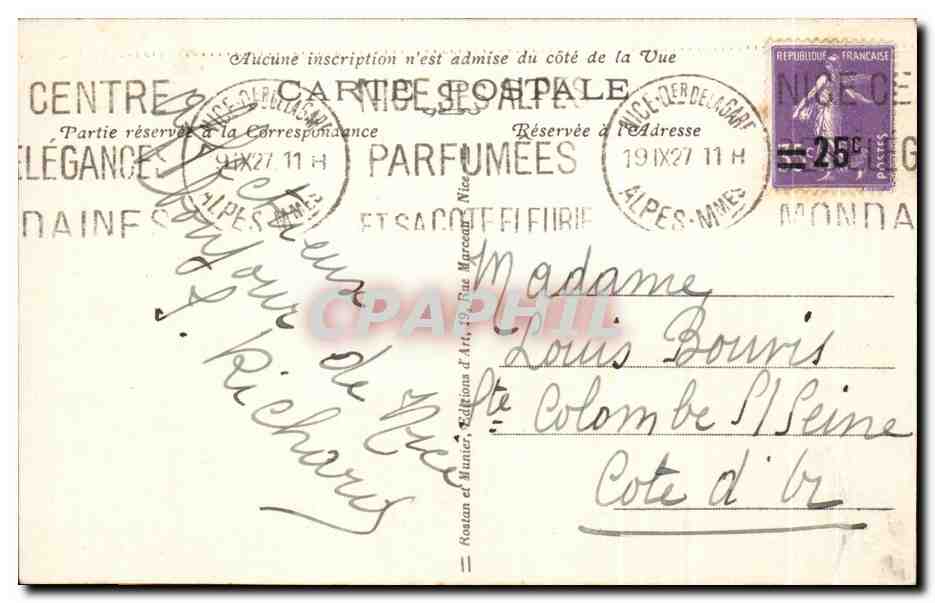 Aucune inscription n'est admise du côté de la Vue
CARTE POSTALE
Partie réservée à la Correspondance
Réservée à l'Adresse
CENTRE
ELÉGANCES
DAINES
NICE-DER DE LA GARE
19 IX 27 11 H
ALPES-MMES
NICE SES ALPES
PARFUMÉES
ET SA COTE FLEURIE
NICE-DER DE LA GARE
19 IX 27 11 H
ALPES-MMES
NICE CE
MONDA
REPUBLIQUE FRANÇAISE
25c
POSTES
bonjour
de Nice
S. Richard
Rostan et Munier, Editions d'Art, 19, Rue Marceau, Nice
Madame
Louis Bouvis
Ste Colombe S/ Seine
Cote d'Or
CPAPHIL